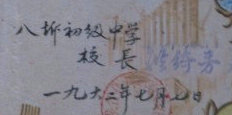 八圻初级中学
校長
一九六二年七月七日